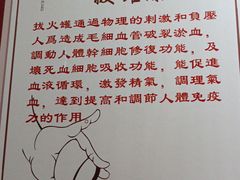 拔火罐通過物理的刺激和負壓
人爲造成毛細血管破裂淤血，
調動人體幹細血修復功能，及
壞死血細血吸收功能，能促進
血液循環，激發精氣，調理氣
血，達到提高和調節人體免疫
力的作用